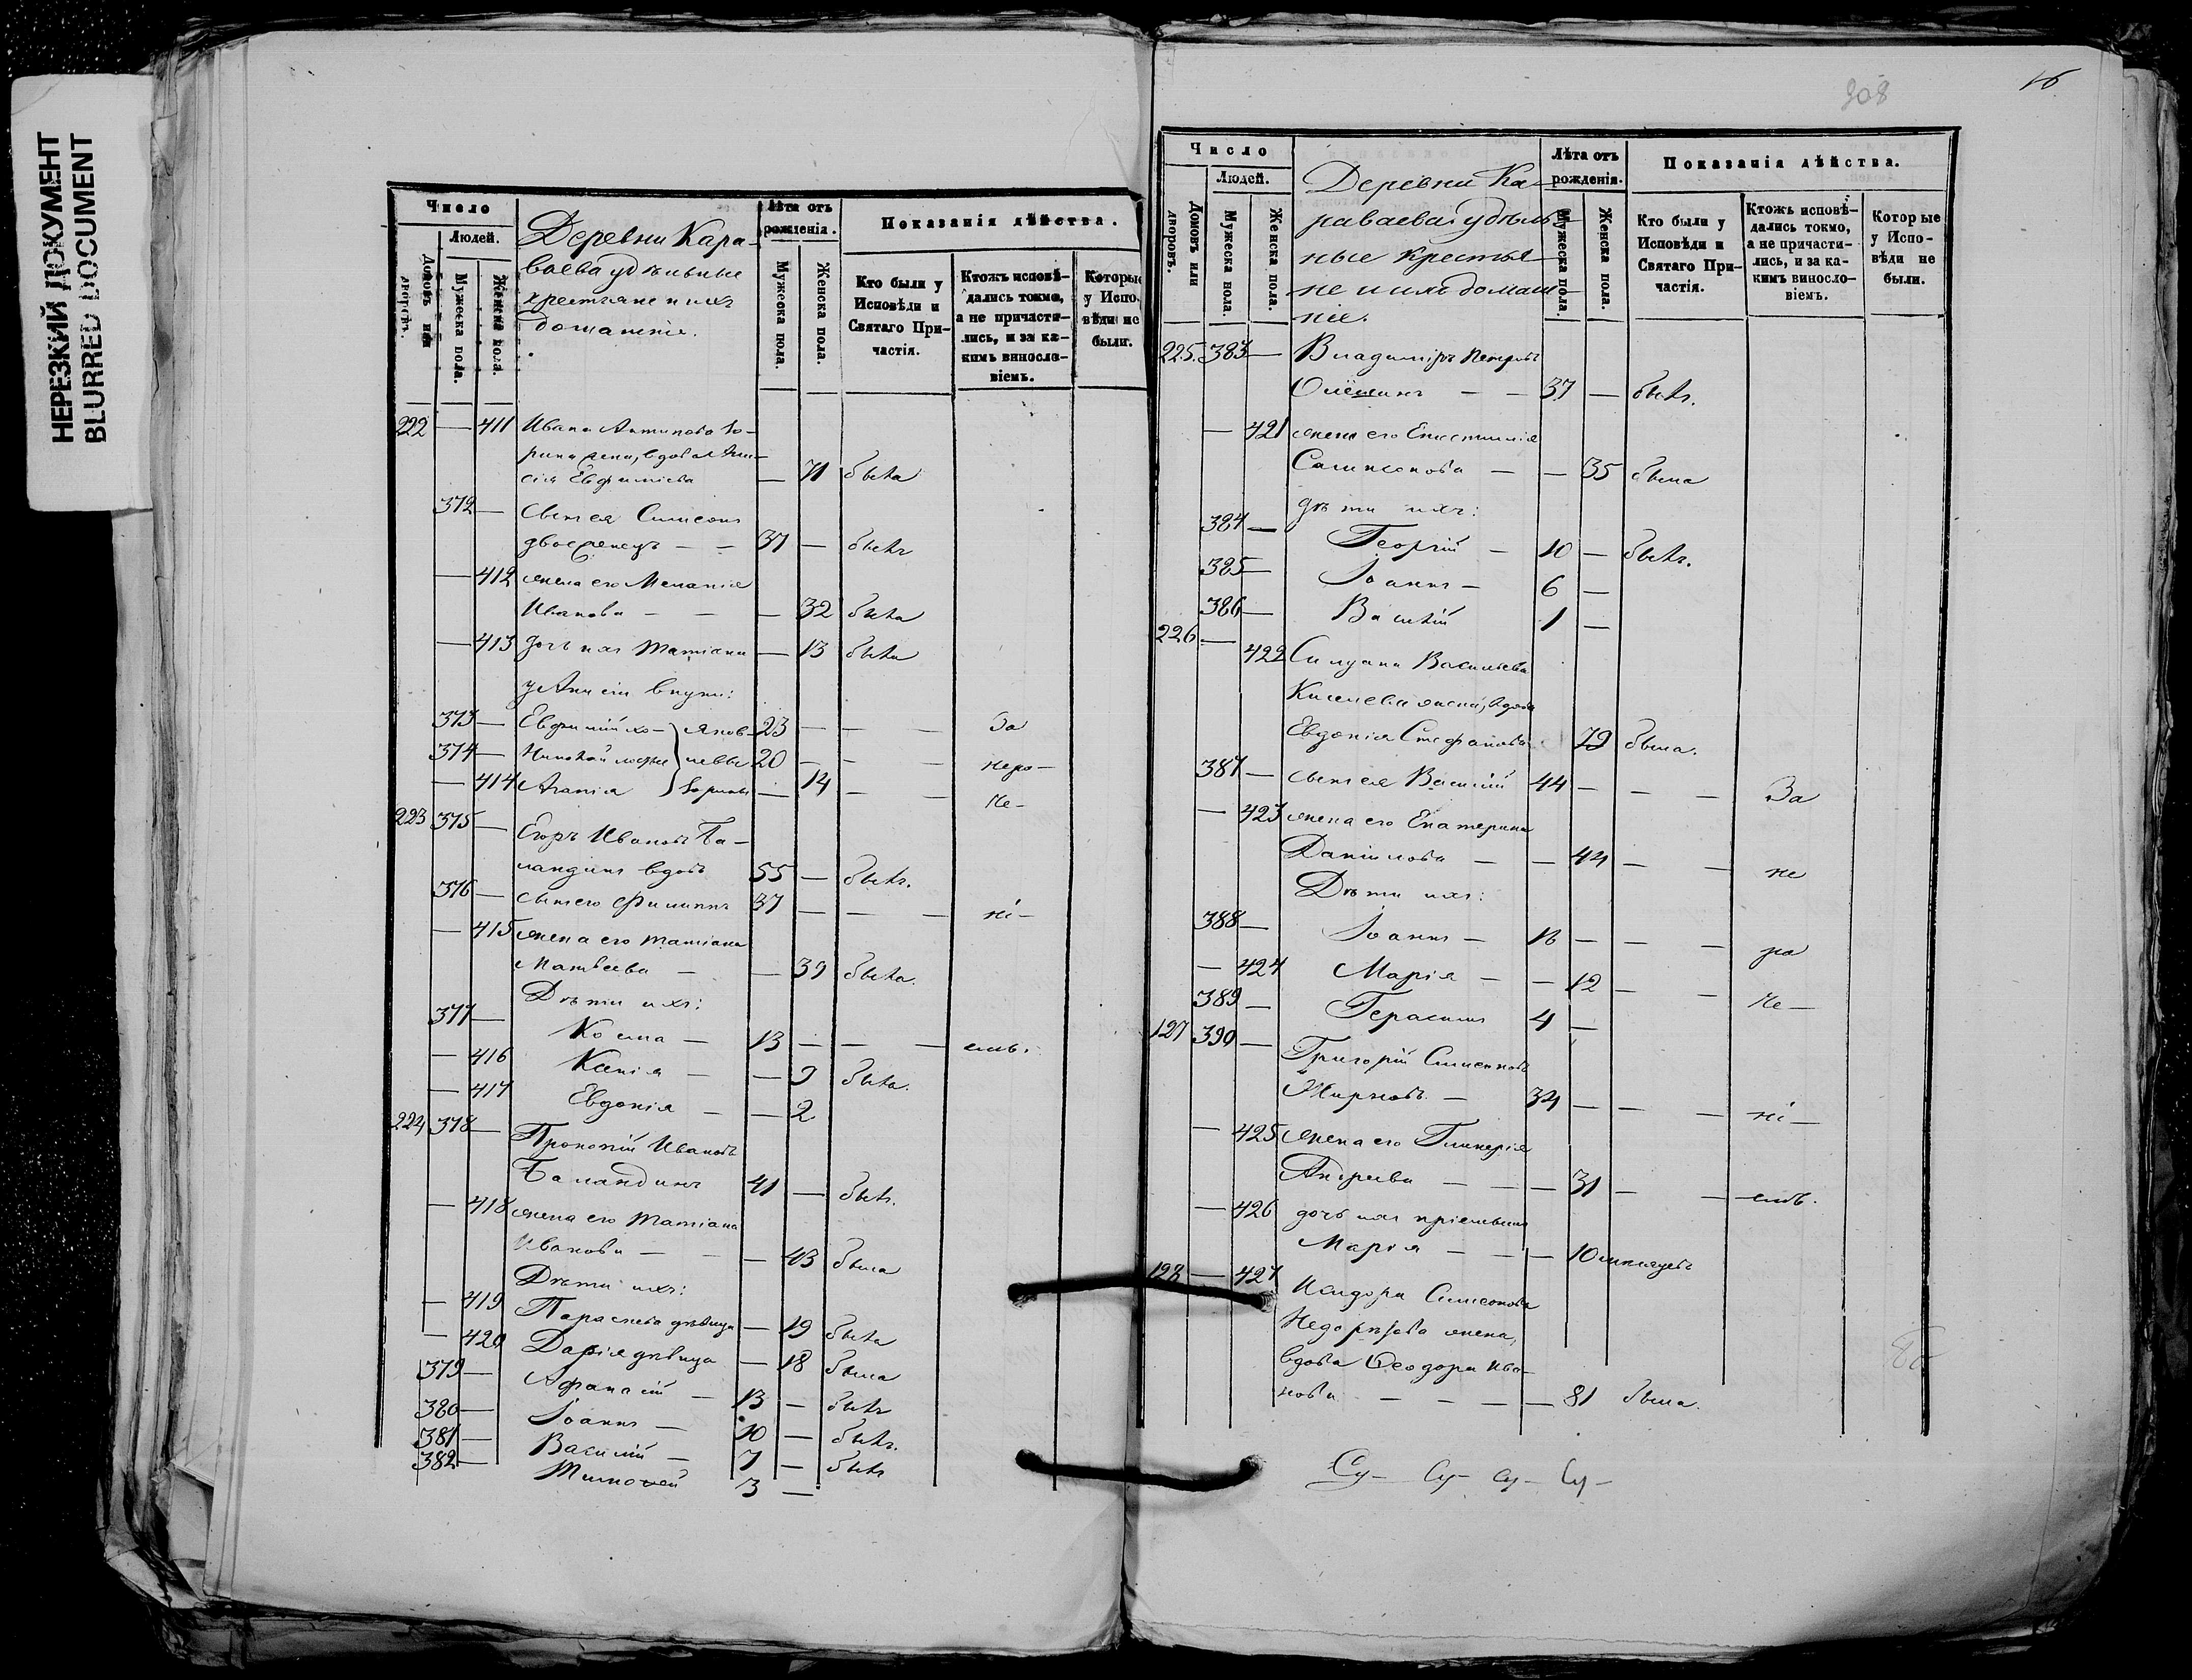 НЕРЕЗКИЙ ДОКУМЕНТ
BLURRED DOCUMENT
Число
Людей.
Домовъ или дворовъ.
Мужеска пола.
Женска пола.
Деревни Кара-
ваева удѣльные
крестьяне и ихъ
домашніе.
Лѣта отъ рожденія.
Мужеска пола.
Женска пола.
Показанія дѣйства.
Кто были у Исповѣди и Святаго Причастія.
Ктожъ исповѣдались токмо, а не причастились, и за какимъ винословіемъ.
Которые у Исповѣди не были.
222 — 411 Ивана Антипова Зо-
рина жена, вдова Ани-
сія Евфиміева — 71 была
372 — сынъ ея Симеонъ
двоеженецъ — — 37 — былъ
— 412 жена его Меланія
Иванова — — — 32 была
— 413 дочь ихъ Татіана — 13 была
у Анисіи внуки:
373 — Евфимій хо- 23 — — — За
374 — Николай 20 — — — нера-
— 414 Агапія Зорины — 14 — — Че-
223 375 — Егоръ Ивановъ Ба-
ландинъ вдовъ 55 — былъ.
376 — сынъ его Филиппъ 37 — — — ні-
— 415 жена его Татіана
Матвеева — — 39 была.
Дѣти ихъ:
377 — Косма — 13 — — — емъ.
— 416 Ксенія — — 9 была.
— 417 Евдокія — — 2
224 378 — Прокопій Ивановъ
Баландинъ 41 — былъ.
— 418 жена его Татіана
Иванова — — — 43 была
Дѣти ихъ:
— 419 Параскева дѣвица — 19 была
— 420 Дарія дѣвица — 18 была
379 — Афанасій — 13 — былъ
380 — Іоаннъ — 10 — былъ.
381 — Василій — 7 — былъ
382 — Тимофей 3 —
308
16
Число
Людей.
Домовъ или дворовъ.
Мужеска пола.
Женска пола.
Деревни Ка-
раваева удѣль-
ные крестья-
не и ихъ домаш-
ніе.
Лѣта отъ рожденія.
Мужеска пола.
Женска пола.
Показанія дѣйства.
Кто были у Исповѣди и Святаго Причастія.
Ктожъ исповѣдались токмо, а не причастились, и за какимъ винословіемъ.
Которые у Исповѣди не были.
225. 383 — Владиміръ Петровъ
— — 37 — былъ.
— 421 жена его Епистимія
Сампсонова — — 35 была
дѣти ихъ:
384 — Георгій — 10 — былъ.
385 — Іоаннъ — 6 —
386 — Василій 1 —
226 — 422 Силуана Васильева
Киселева жена, вдова
Евдокія Стефанова 79 была.
387 — сынъ ея Василій 44 — — — За
— 423 жена его Екатерина
Даніилова — — 44 — — не
Дѣти ихъ:
388 — Іоаннъ — 16 — — — ра
— 424 Марія — — 12 — — Че—
389 — Герасимъ 4 —
127 390 — Григорій Симеоновъ
Жирновъ. — 34 — — — ні—
— 425 жена его Гликерія
Андреева — — — 31 — — емъ.
— 426 дочь ихъ пріемышъ
Марія — — — 10 мѣсяцевъ
128 — 427 Исидора Симеонова
жена,
вдова Ѳеодора Ива-
нова — — — — 81 была.
Су— Су— Су— Су—